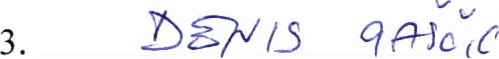 3. DENIS GAŠČIĆ